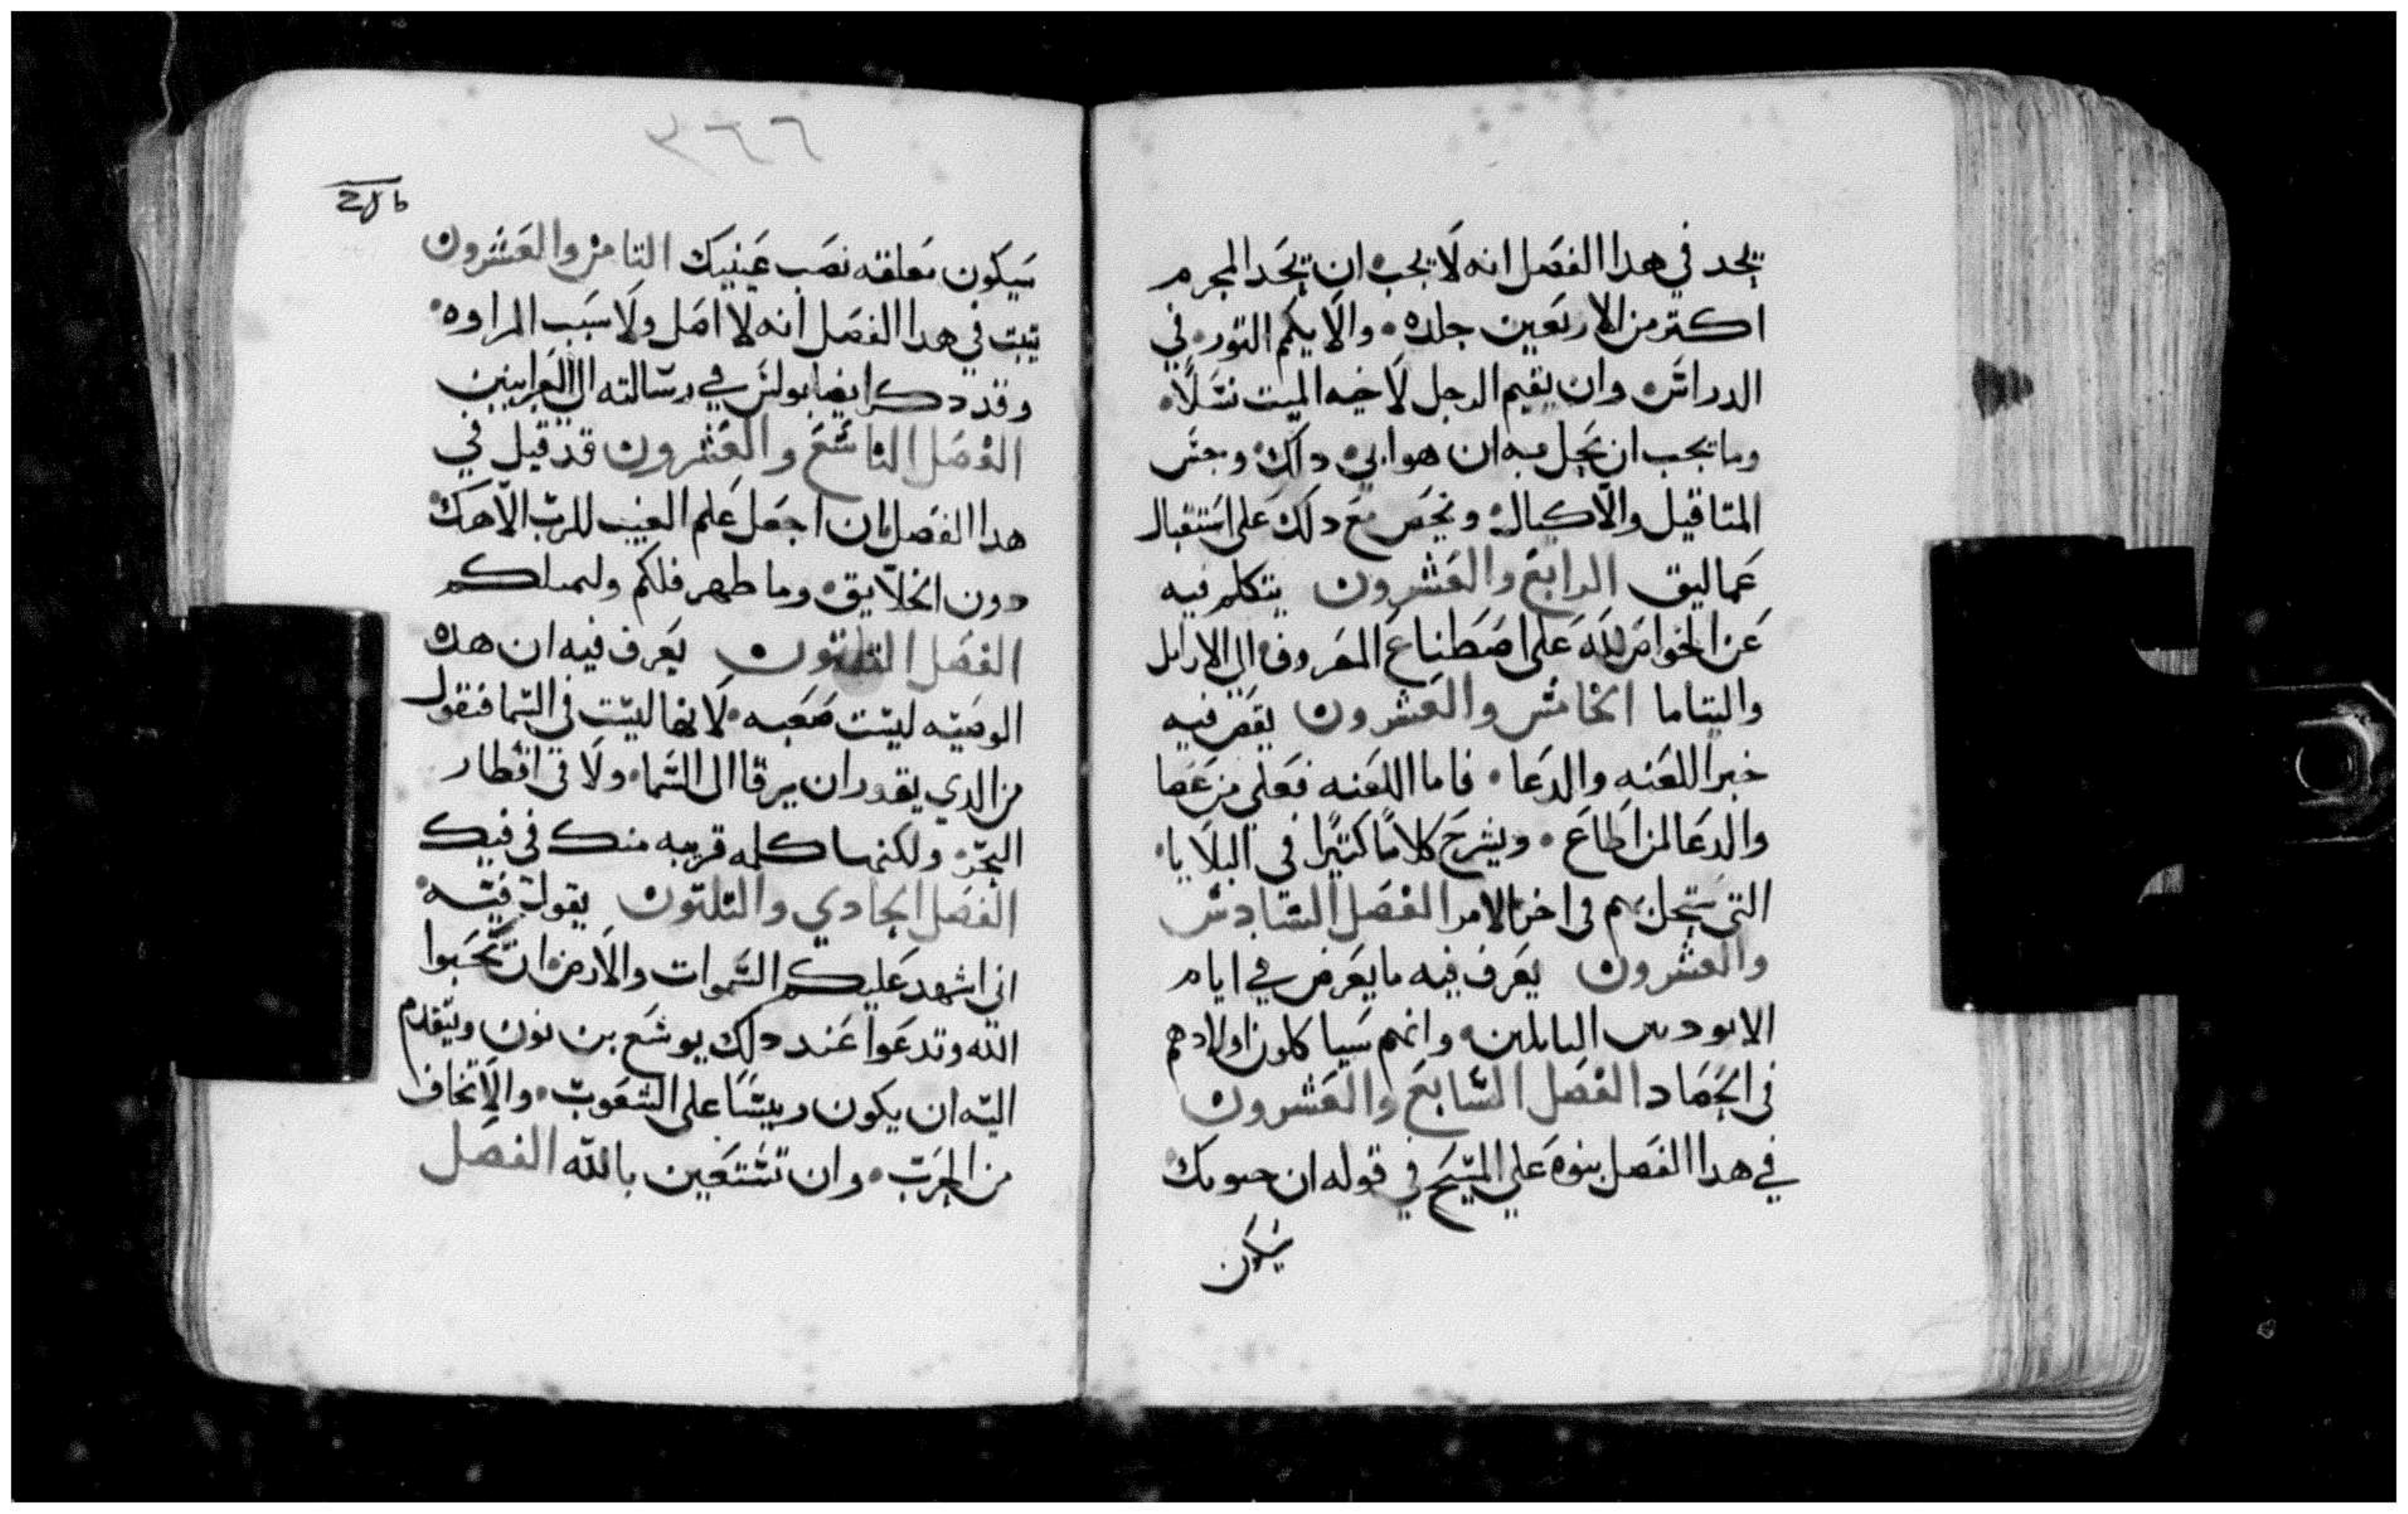 يحد في هدا الفصل انه لا يجب ان يحد المجرم
اكتر من الاربعين جلده والا يكم التور في
الدراس وان يقيم الرجل لاخيه الميت نسلا
وما يجب ان يحل به ان هو ابى دلك وجس
المتاقيل والاكيال ويحص مع دلك على استقبال
عماليق الرابع والعشرون يتكلم فيه
عن الخواص لله على اصطناع المعروف الى الارامل
واليتاما الخامس والعشرون يقص فيه
خبر اللعنه والدعا فاما اللعنه فعلى من عصا
والدعا لمن اطاع ويشرح كلاما كتيرا في البلايا
التى ستحل بهم فى اخر الامر الفصل السادس
والعشرون يعرف فيه ما يعرض في ايام
وانهم سياكلون اولادهم
فى الحصاد الفصل السابع والعشرون
في هدا الفصل بنوه على المسيح في قوله ان حيوتك
سيكون
٣٦٦
سيكون معلقه نصب عينيك التامن والعشرون
تبت في هدا الفصل انه لا اصل ولا سبب المراوه
وقد دكر ايضا بولس في رسالته الى العبرانيين
الفصل التاسع والعشرون قد قيل في
هدا الفصل بان اجعل علم الغيب للرب الاهك
دون الخلايق وما ظهر فلكم ولنسلكم
الفصل التلتون يعرف فيه ان هده
الوصيه ليست صعبه لانها ليست فى السما فنقول
من الدي يقدر ان يرقا الى السما ولا في اقطار
البحر ولكنها كلمه قريبه منك في فيك
الفصل الحادي والتلتون يقول فيه
انى اشهد عليكم السموات والارض ان تحبوا
الله وتدعوا عند دلك يوشع بن نون ويتقدم
اليه ان يكون رييسا على الشعوب والا تخاف
من الحرب وان تستعين بالله الفصل